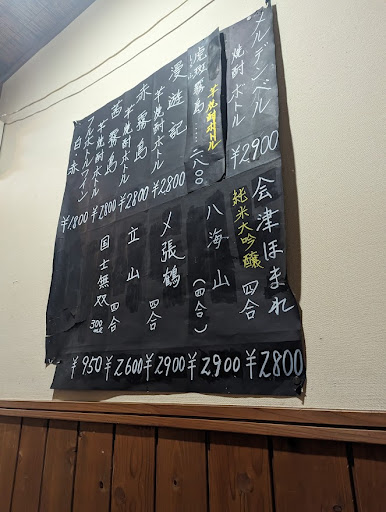 メルデンベル
焼酎ボトル
¥2900
芋焼酎ボトル
琥珀霧島……二八〇〇
漫遊記
芋焼酎ボトル
¥2800
赤霧島
芋焼酎ボトル
¥2800
茜霧島
芋焼酎ボトル
¥2800
フルボトルワイン
白・赤
¥1800
会津ほまれ
純米大吟醸 四合
¥2800
八海山(四合)
¥2900
〆張鶴 四合
¥2900
立山 四合
¥2600
国士無双 300ml
¥950